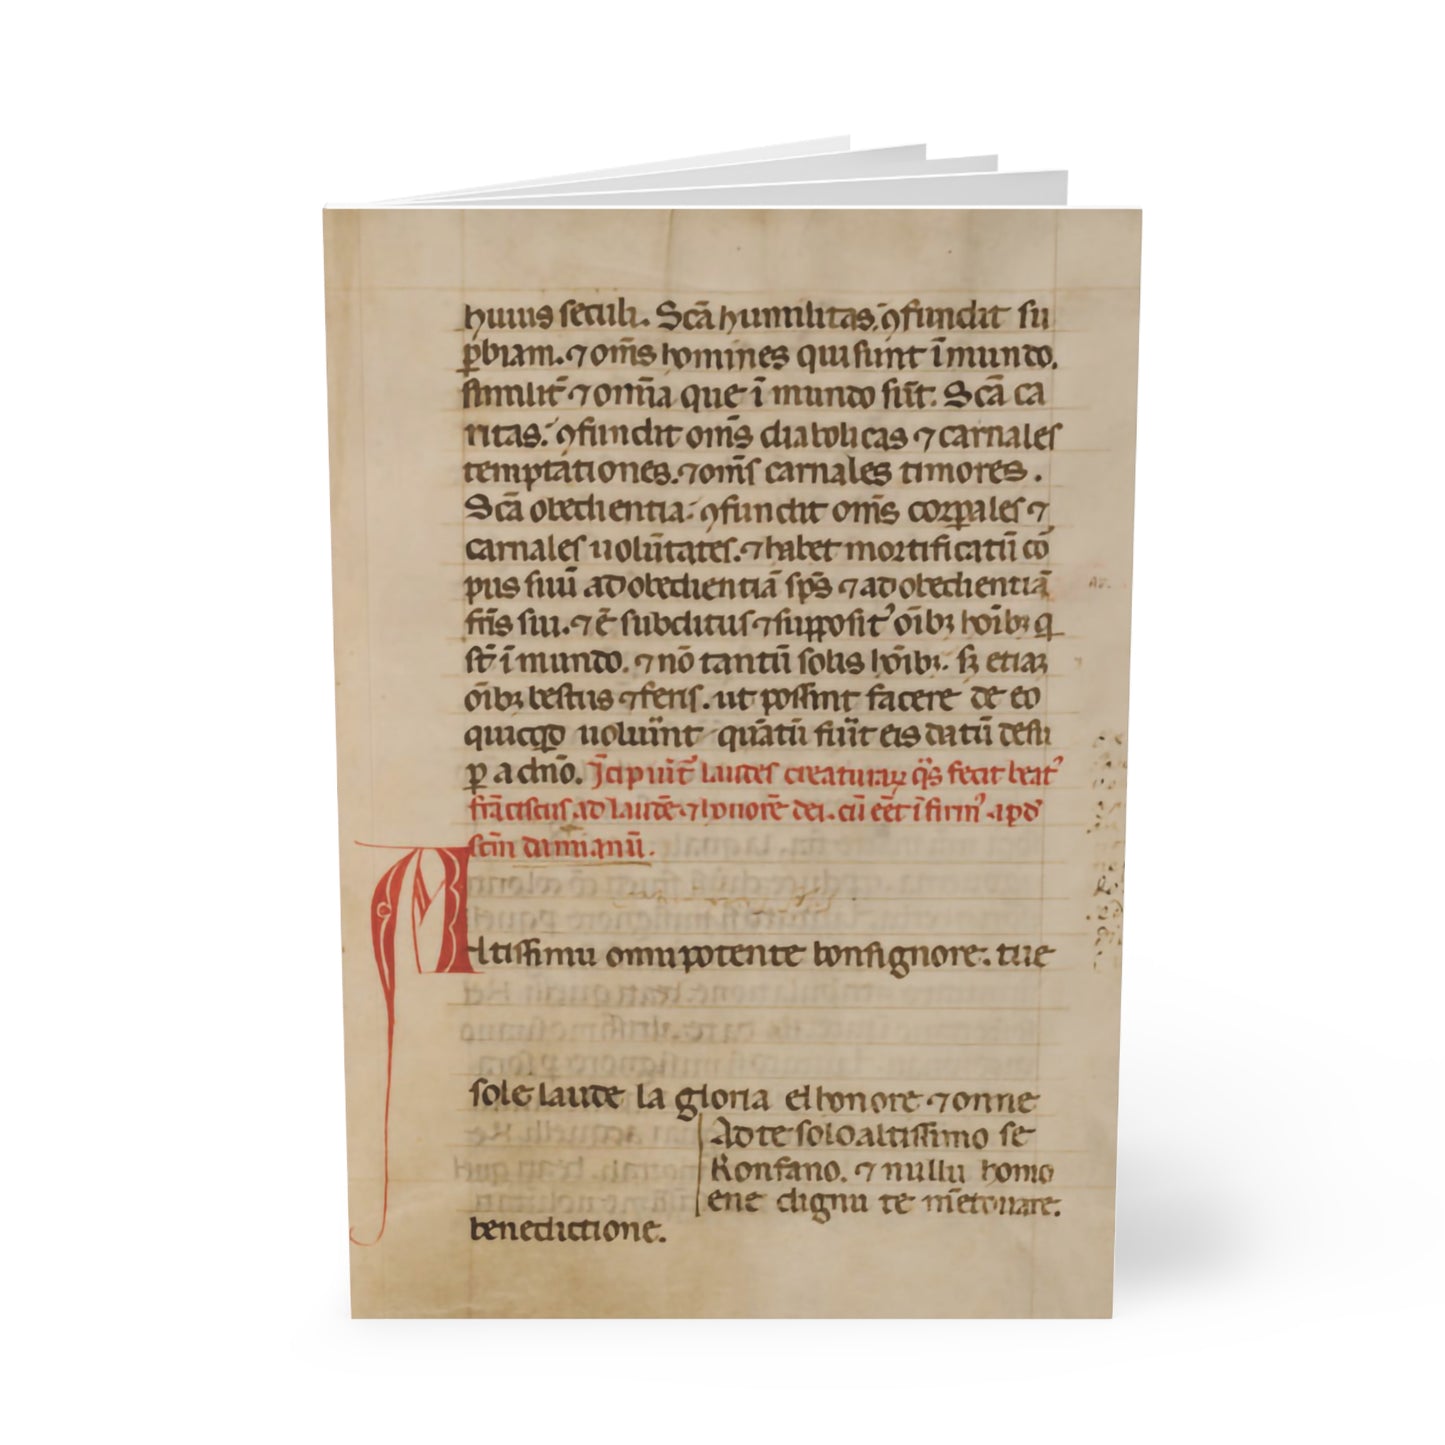 huius seculi. Scā humilitas. ꝯfundit su
ꝑbiam. ⁊ om̄s homines qui sunt ī mundo.
similit̄ ⁊ om̄ia que ī mundo sūt. Scā ca
ritas. ꝯfundit om̄s diabolicas ⁊ carnales
temptationes. ⁊ om̄s carnales timores.
Scā obedientia. ꝯfundit om̄s corꝑales ⁊
carnales uolūtates. ⁊ habet mortificatū cor
pus suū ad obedientiā sp̄s ⁊ ad obedientiā
fr̄is sui. ⁊ ē subditus ⁊ supposit᾽ oībꝫ hoībꝫ q̄
st̄ ī mundo. ⁊ nō tantū solis hoībꝫ. sꝫ etiaꝫ
oībꝫ bestiis ⁊ feris. ut possint facere de eo
quicqd uoluīnt quātū fuīt eis datū desu
ꝑ a dn̄o. Īcipiūt laudes creaturaꝝ q̄s fecit beat᾽
frāciscus ad laudē ⁊ honorē dei. cū eēt īfirm᾽ apd
scm̄ damianū.
Altissimu omnipotente bonsignore. tue
sole laude la gloria elhonore ⁊ onne
Ad te solo altissimo se
Konfano. ⁊ nullu homo
ene dignu te mētouare.
benedictione.